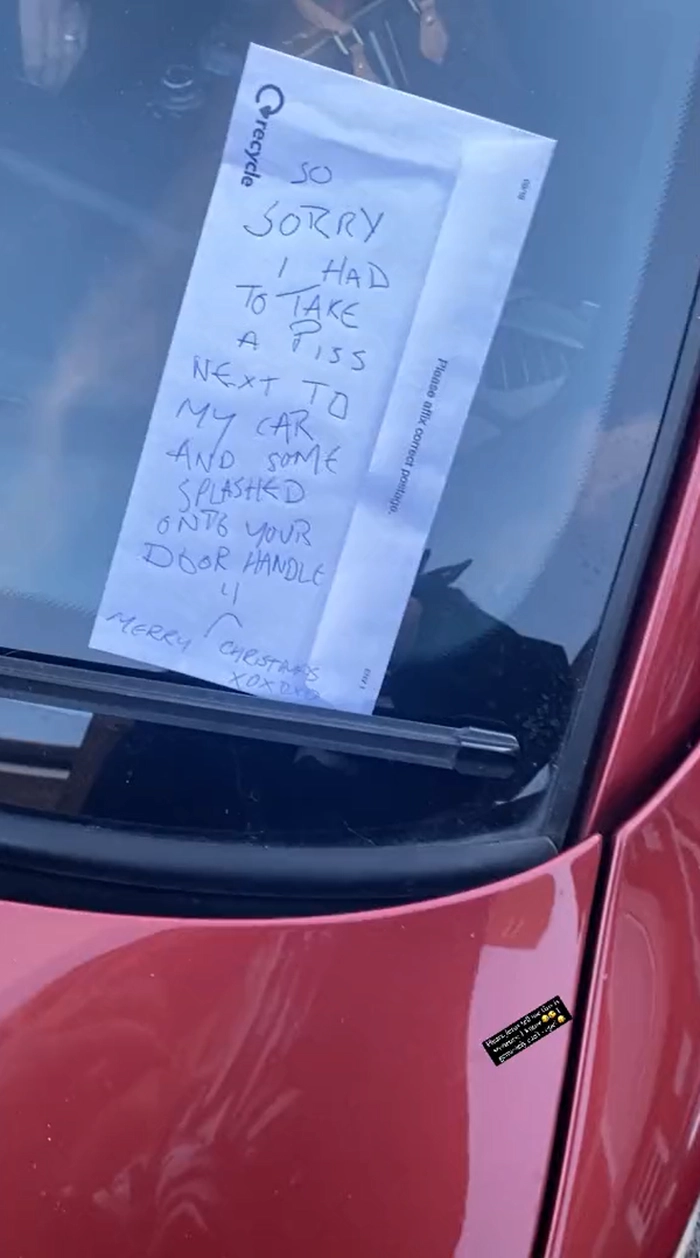 recycle
SO
SORRY
I HAD
TO TAKE
A PISS
NEXT TO
MY CAR
AND SOME
SPLASHED
ONTO YOUR
DOOR HANDLE
MERRY CHRISTMAS
XOXOXO
Please affix correct postage.